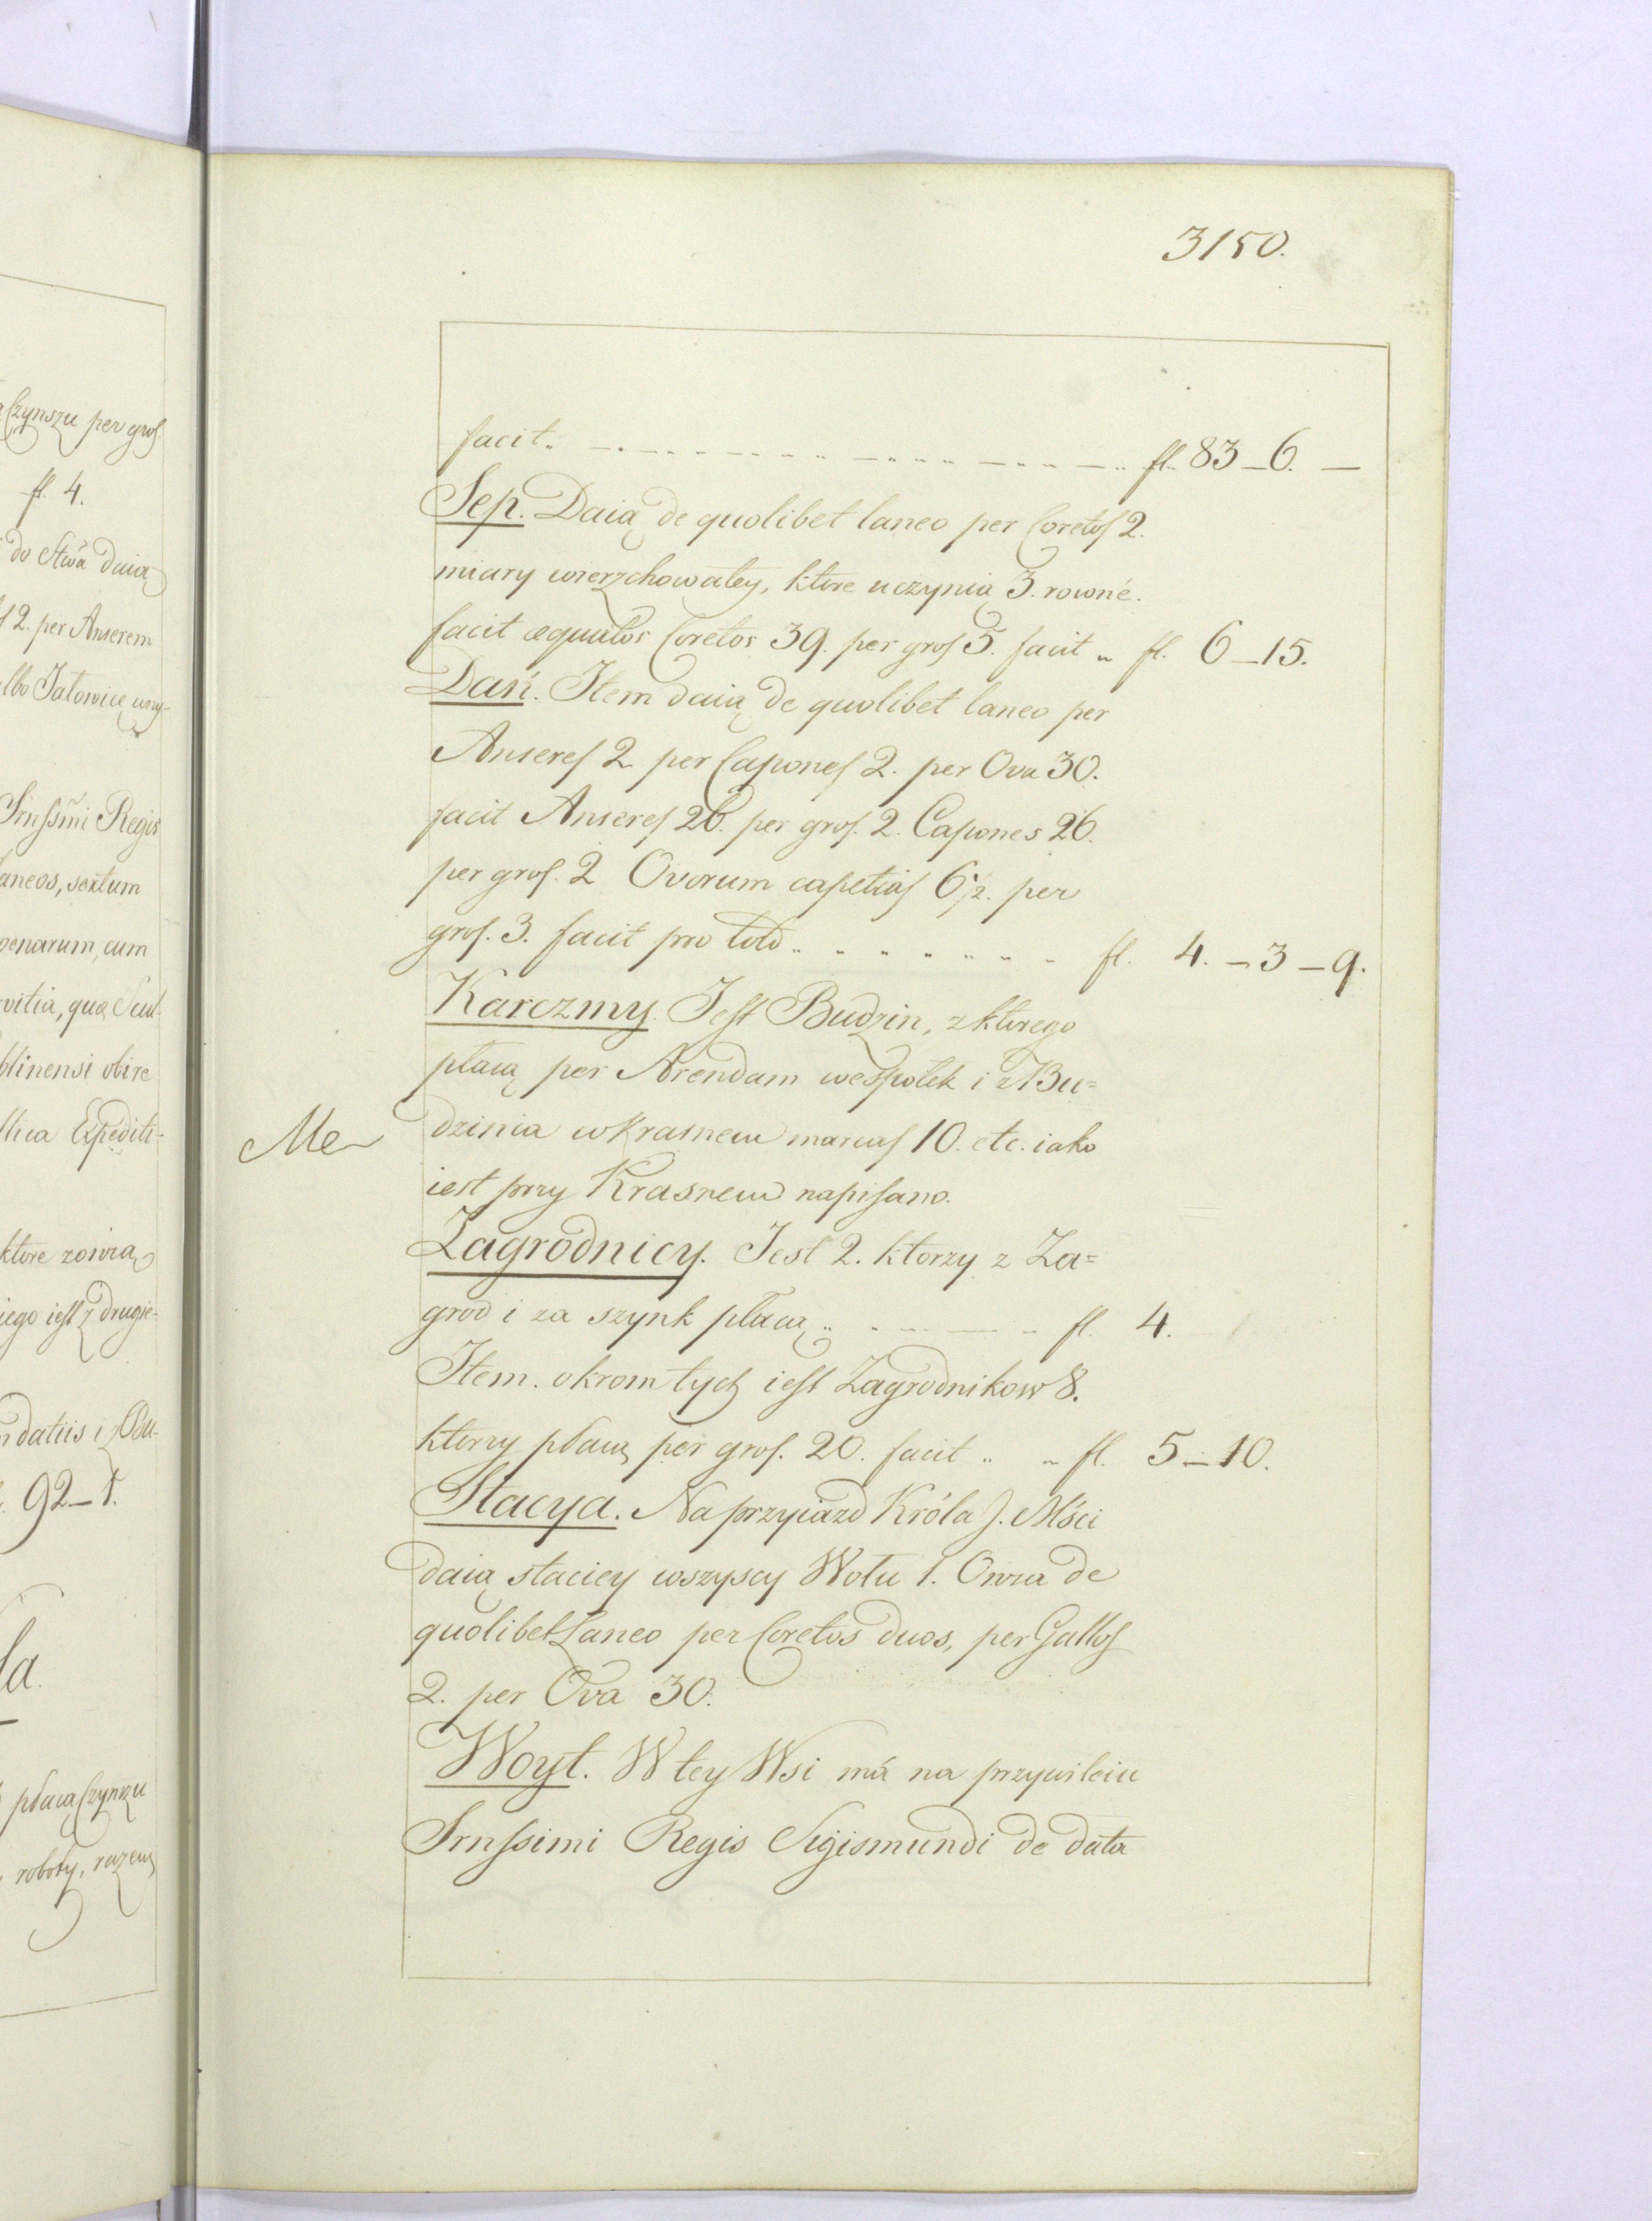 3150.
facit. fl. 83_6. _
Sep. Daią de quolibet laneo per Coretos 2.
miary wierzchowatey, ktore uczynią 3. rowné.
facit æquatos Coretos 39. per gros 5. facit „ fl. 6_15.
Dań. Item daią de quolibet laneo per
Anseres 2 per Capones 2. per Ova 30.
facit Anseres 26. per gros. 2. Capones 26.
per gros. 2 Ovorum capetias 6½. per
gros. 3. facit pro toto fl. 4._3_9.
Karczmy. Jest Budzin, z ktorego
płacą per Arendam wespołek i z Bu=
dzinia w Krasnem marcas 10. etc. iako
iest przy Krasnem napisano.
Zagrodnicy. Jest 2. ktorzy z Za=
grod i za szynk płacą fl. 4.
Item. okrom tych iest Zagrodnikow 8.
ktorzy płacą per gros. 20. facit „ „ fl. 5_10.
Stacya. Na przyiazd Króla J. Mści
daią staciey wszyscy Wołu 1. Owsa de
quolibet Laneo per Coretos duos, per Gallos
2. per Ova 30.
Woyt. W tey Wsi má na przywileiu
Srnssimi Regis Sigismundi de data
Czynszu per gros.
fl. 4.
do Stwa daią
12. per Anserem
albo Jałowicę
Srnssmi Regis
laneos, sextum
cum
quæ
obire
Expediti-
ktore zowią
iest z drugie-
datiis i z Bu-
92_1.
płacą Czynszu
roboty, razem